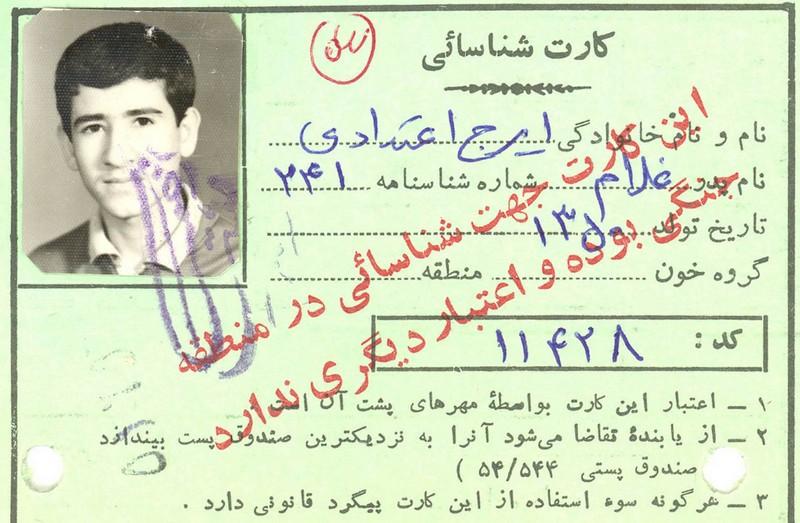 کارت شناسائی
نام و نام خانوادگی ایرج اعتمادی
نام پدر غلام شماره شناسنامه ۲۴۱
تاریخ تولد
گروه خون منطقه
کد : ۱۱۴۲۸
این کارت جهت شناسائی در منطقه
جنگی بوده و اعتبار دیگری ندارد
۱ – اعتبار این کارت بواسطهٔ مهرهای پشت آن است
۲ – از یابندهٔ تقاضا می‌شود آنرا به نزدیکترین صندوق پست بیندازد
صندوق پستی ۵۴/۵۴۴ )
۳ – هرگونه سوء استفاده از این کارت پیگرد قانونی دارد .